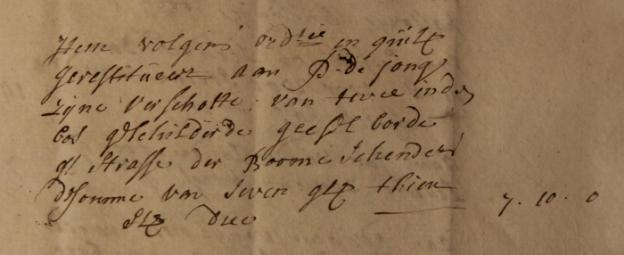 Item volgens ord[tie] en quitt
gerestitueert aan P. de Jong
zijne verschotte van twee inde
bos geschilderde geessel borde
tot straffe der Boome schenders
dsomme van seven gl thien
st dus 7. 10. 0